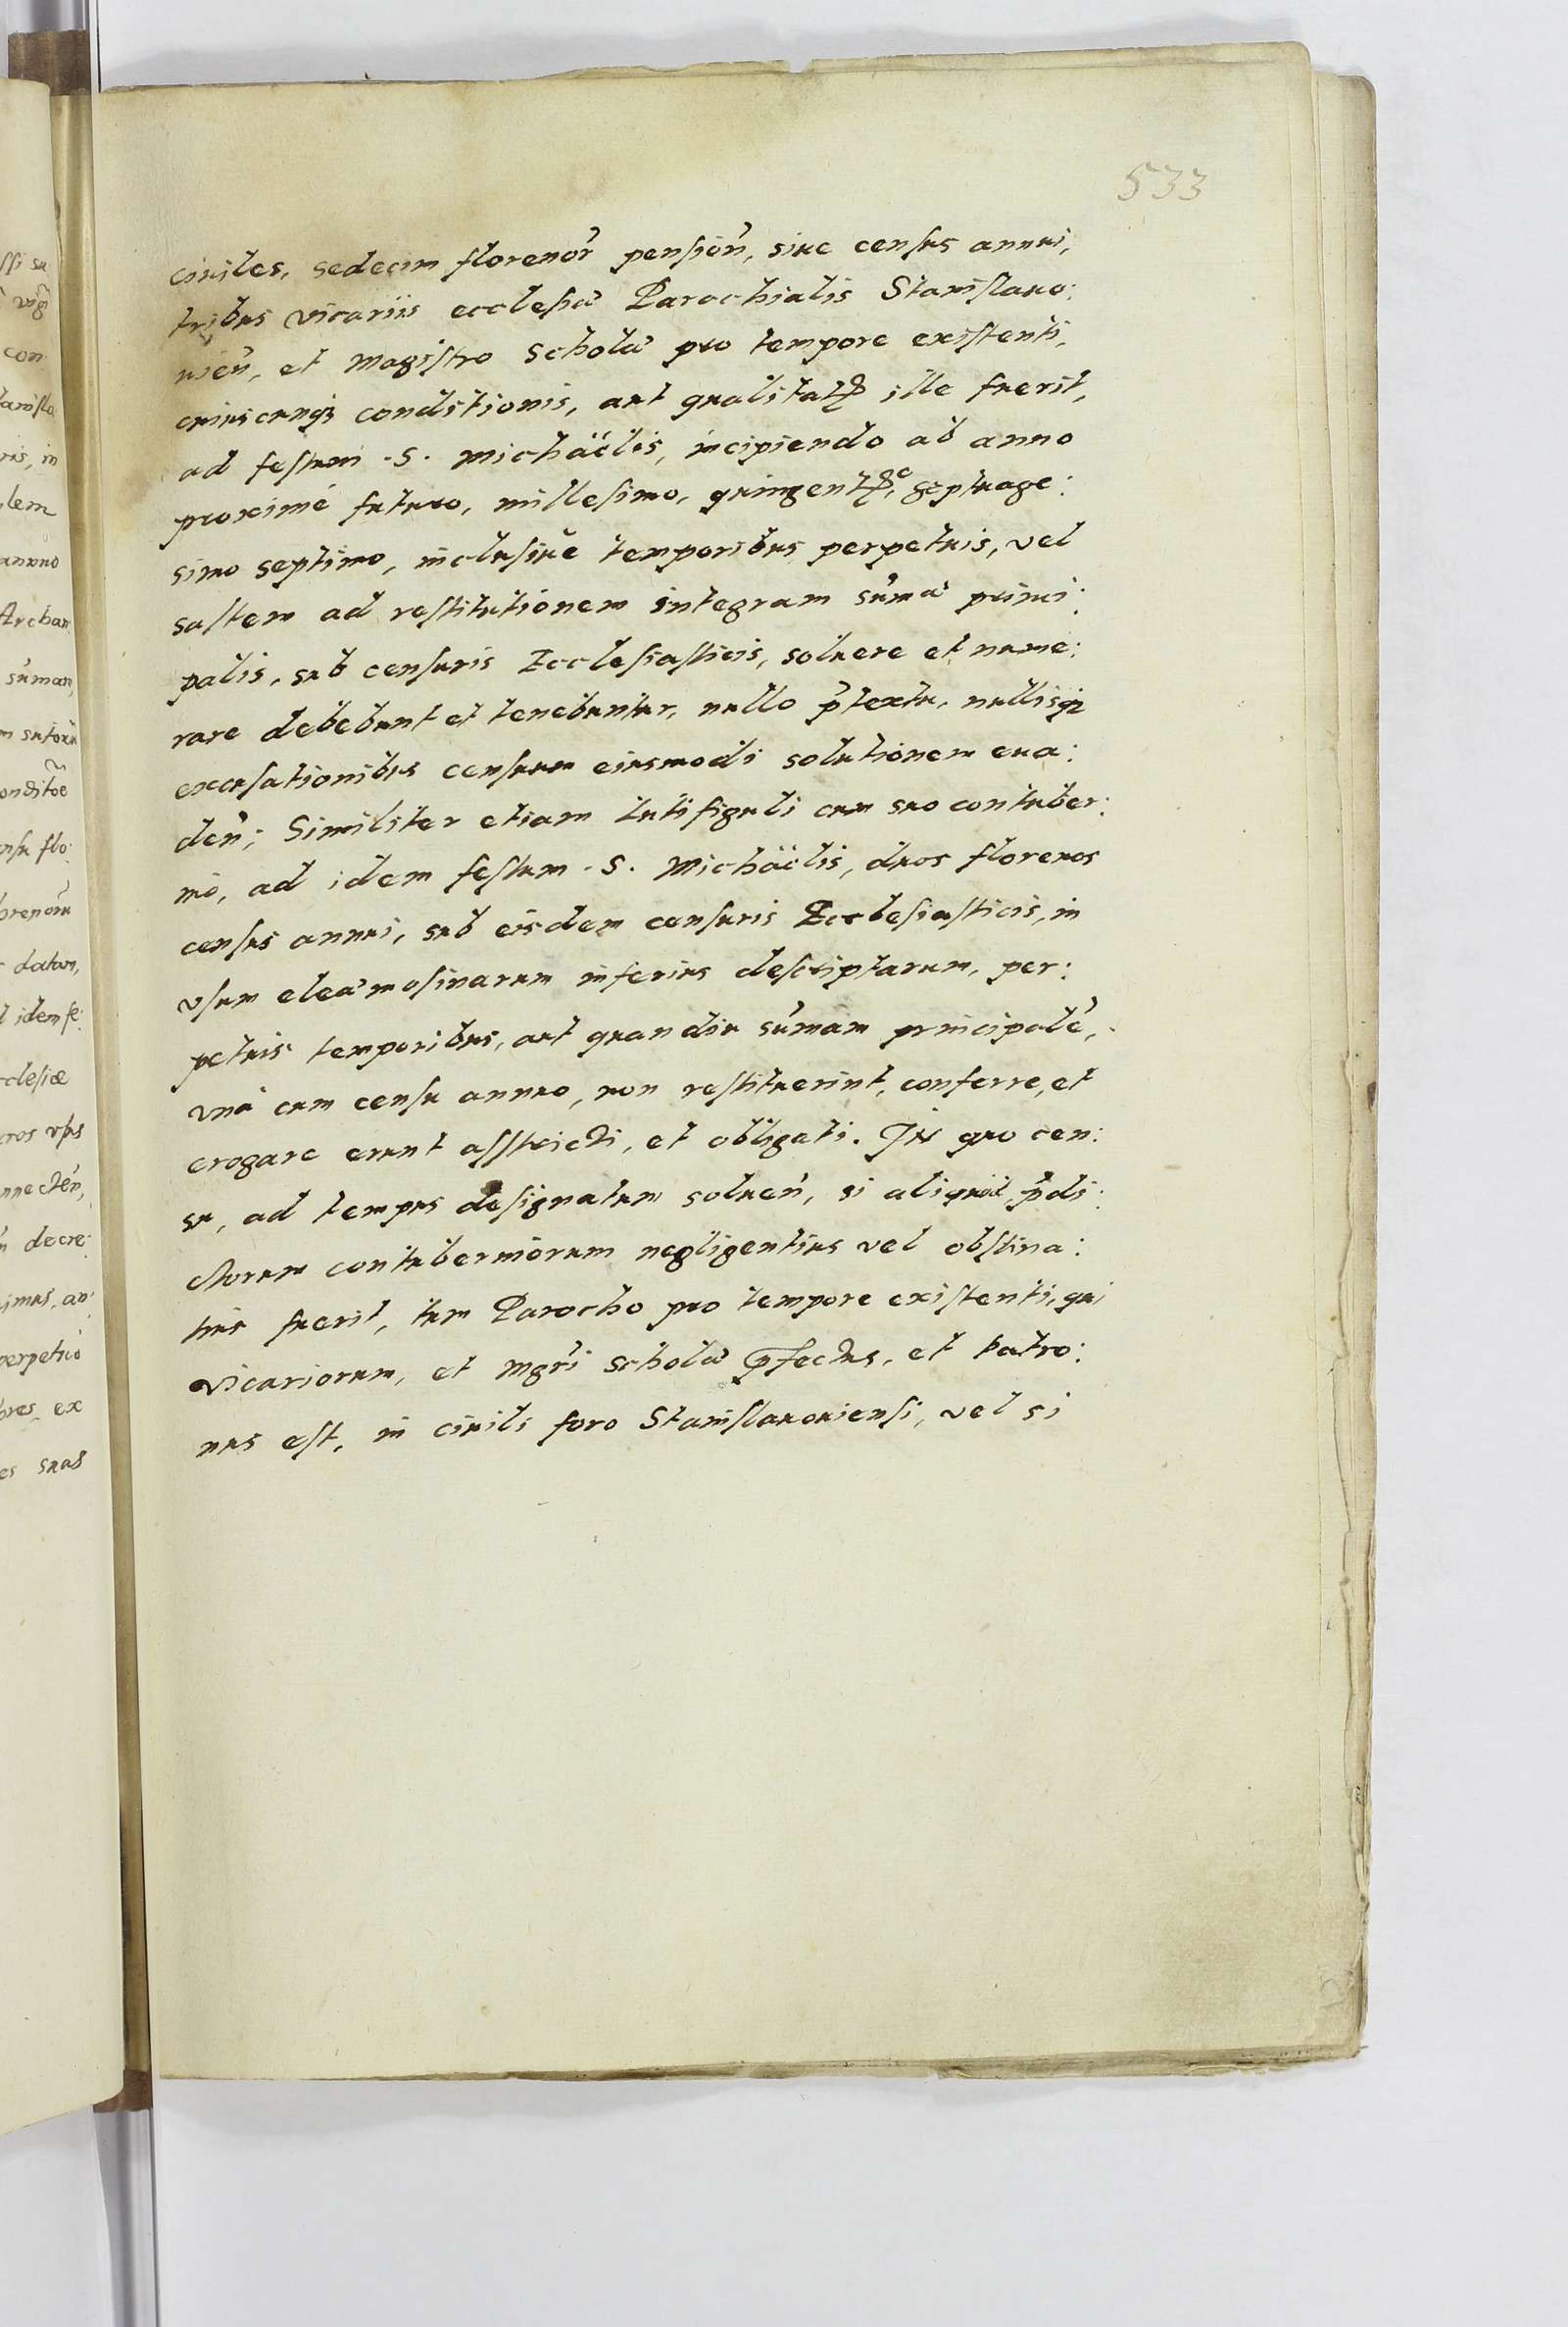 533
ciuiles, sedecim florenor̃ pension̄, siue census annui,
tribus vicariis ecclesiæ Parochialis Stanislauo:
uien̄, et Magistro Scholæ pro tempore existenti,
cuiuscunq₃ conditionis, aut qualitatꝭ ille fuerit,
ad festum .S. Michäelis, incipiendo ab anno
proximé futuro, millesimo, quingentꝭº, septuage:
simo septimo, inclusiuè temporibus perpetuis, vel
saltem ad restitutionem integram sūmæ princi:
palis, sub censuris Ecclesiasticis, soluere et nume:
rare debebunt et tenebuntur, nullo p̄textu, nullisq₃
excusationibus censuum eiusmodi solutionem eua:
den̄; Similiter etiam Lutifiguli cum suo contuber:
nio, ad idem festum .S. Michäelis, duos florenos
census annui, sub eisdem censuris Ecclesiasticis, in
vsum eleæmosinarum inferius descriptarum, per:
petuis temporibus, aut quandiu sūmam principalē,
vnà cum censu annuo, non restituerint, conferre, et
erogare erunt asstricti, et obligati. IN quo cen:
su, ad tempus designatum soluen̄, si aliquod p̄di:
ctorum contuberniorum negligentius vel obstina:
tius fuerit, tum Parocho pro tempore existenti, qui
vicariorum, et Mgr̄i scholæ p̄fectus, et patro:
nus est, in ciuili foro Stanislauouiensi, vel si